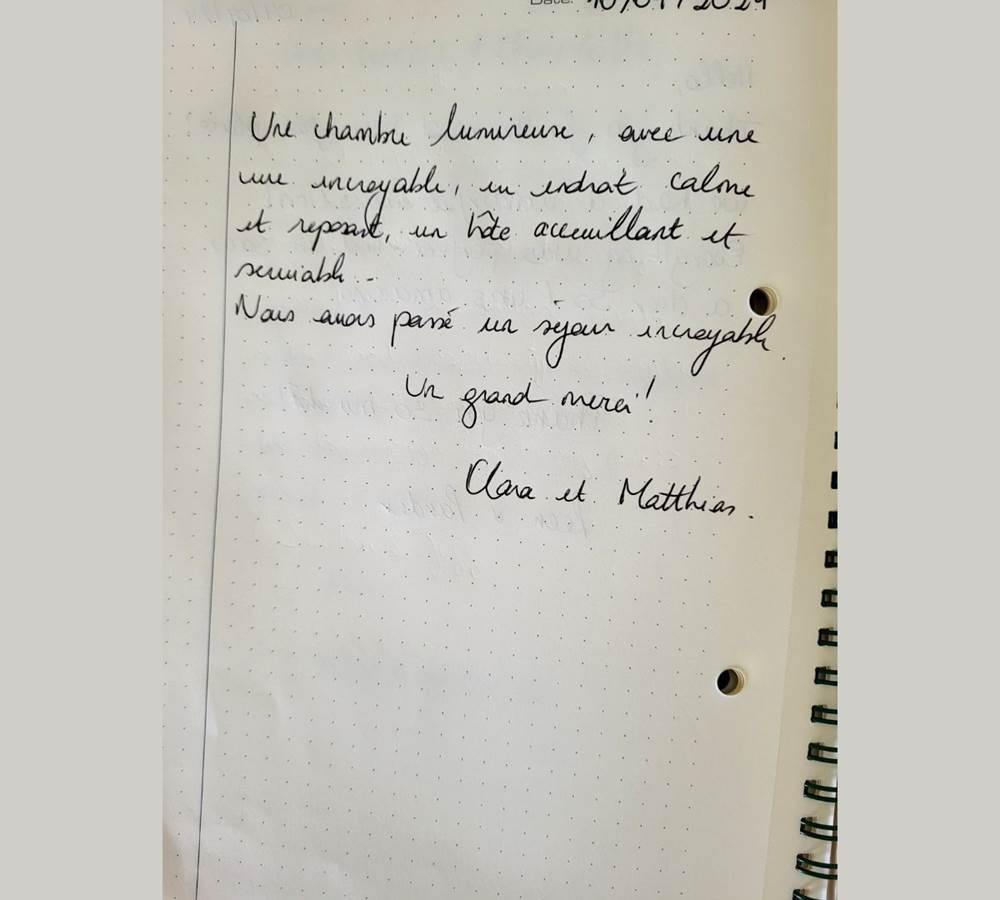 Une chambre lumineuse, avec une
vue incroyable, un endroit calme
et reposant, un hôte acceuillant et
serviable..
Nous avons passé un séjour incroyable.
Un grand merci!
Clara et Matthias.